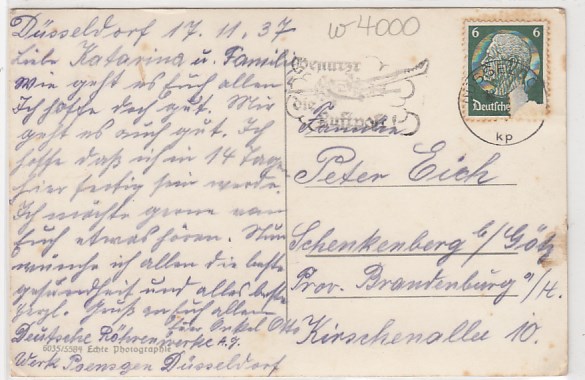 Düsseldorf 17.11.37
Liebe Katarina u. Famili
wie geht es Euch allen
Ich hoffe doch gut. Mir
geht es auch gut. Ich
hoffe daß ich in 14 Tage
hier fertig sein werde.
Ich möchte gerne von
Euch etwas hören. Nun
wünsche ich allen die beste
gesundheit und alles beste
Gruß an Euch allen
Euer Onkel Otto
Deutsche Röhrenwerke A.G.
Werk Poensgen Düsseldorf
6035/5504 Echte Photographie
w 4000
Benutzt
die
Luftpost!
6 6
Deutsche
kp
Familie
Peter Eich
Schenkenberg b/Götz
Prov. Brandenburg a/H.
Kirschenallee 10.